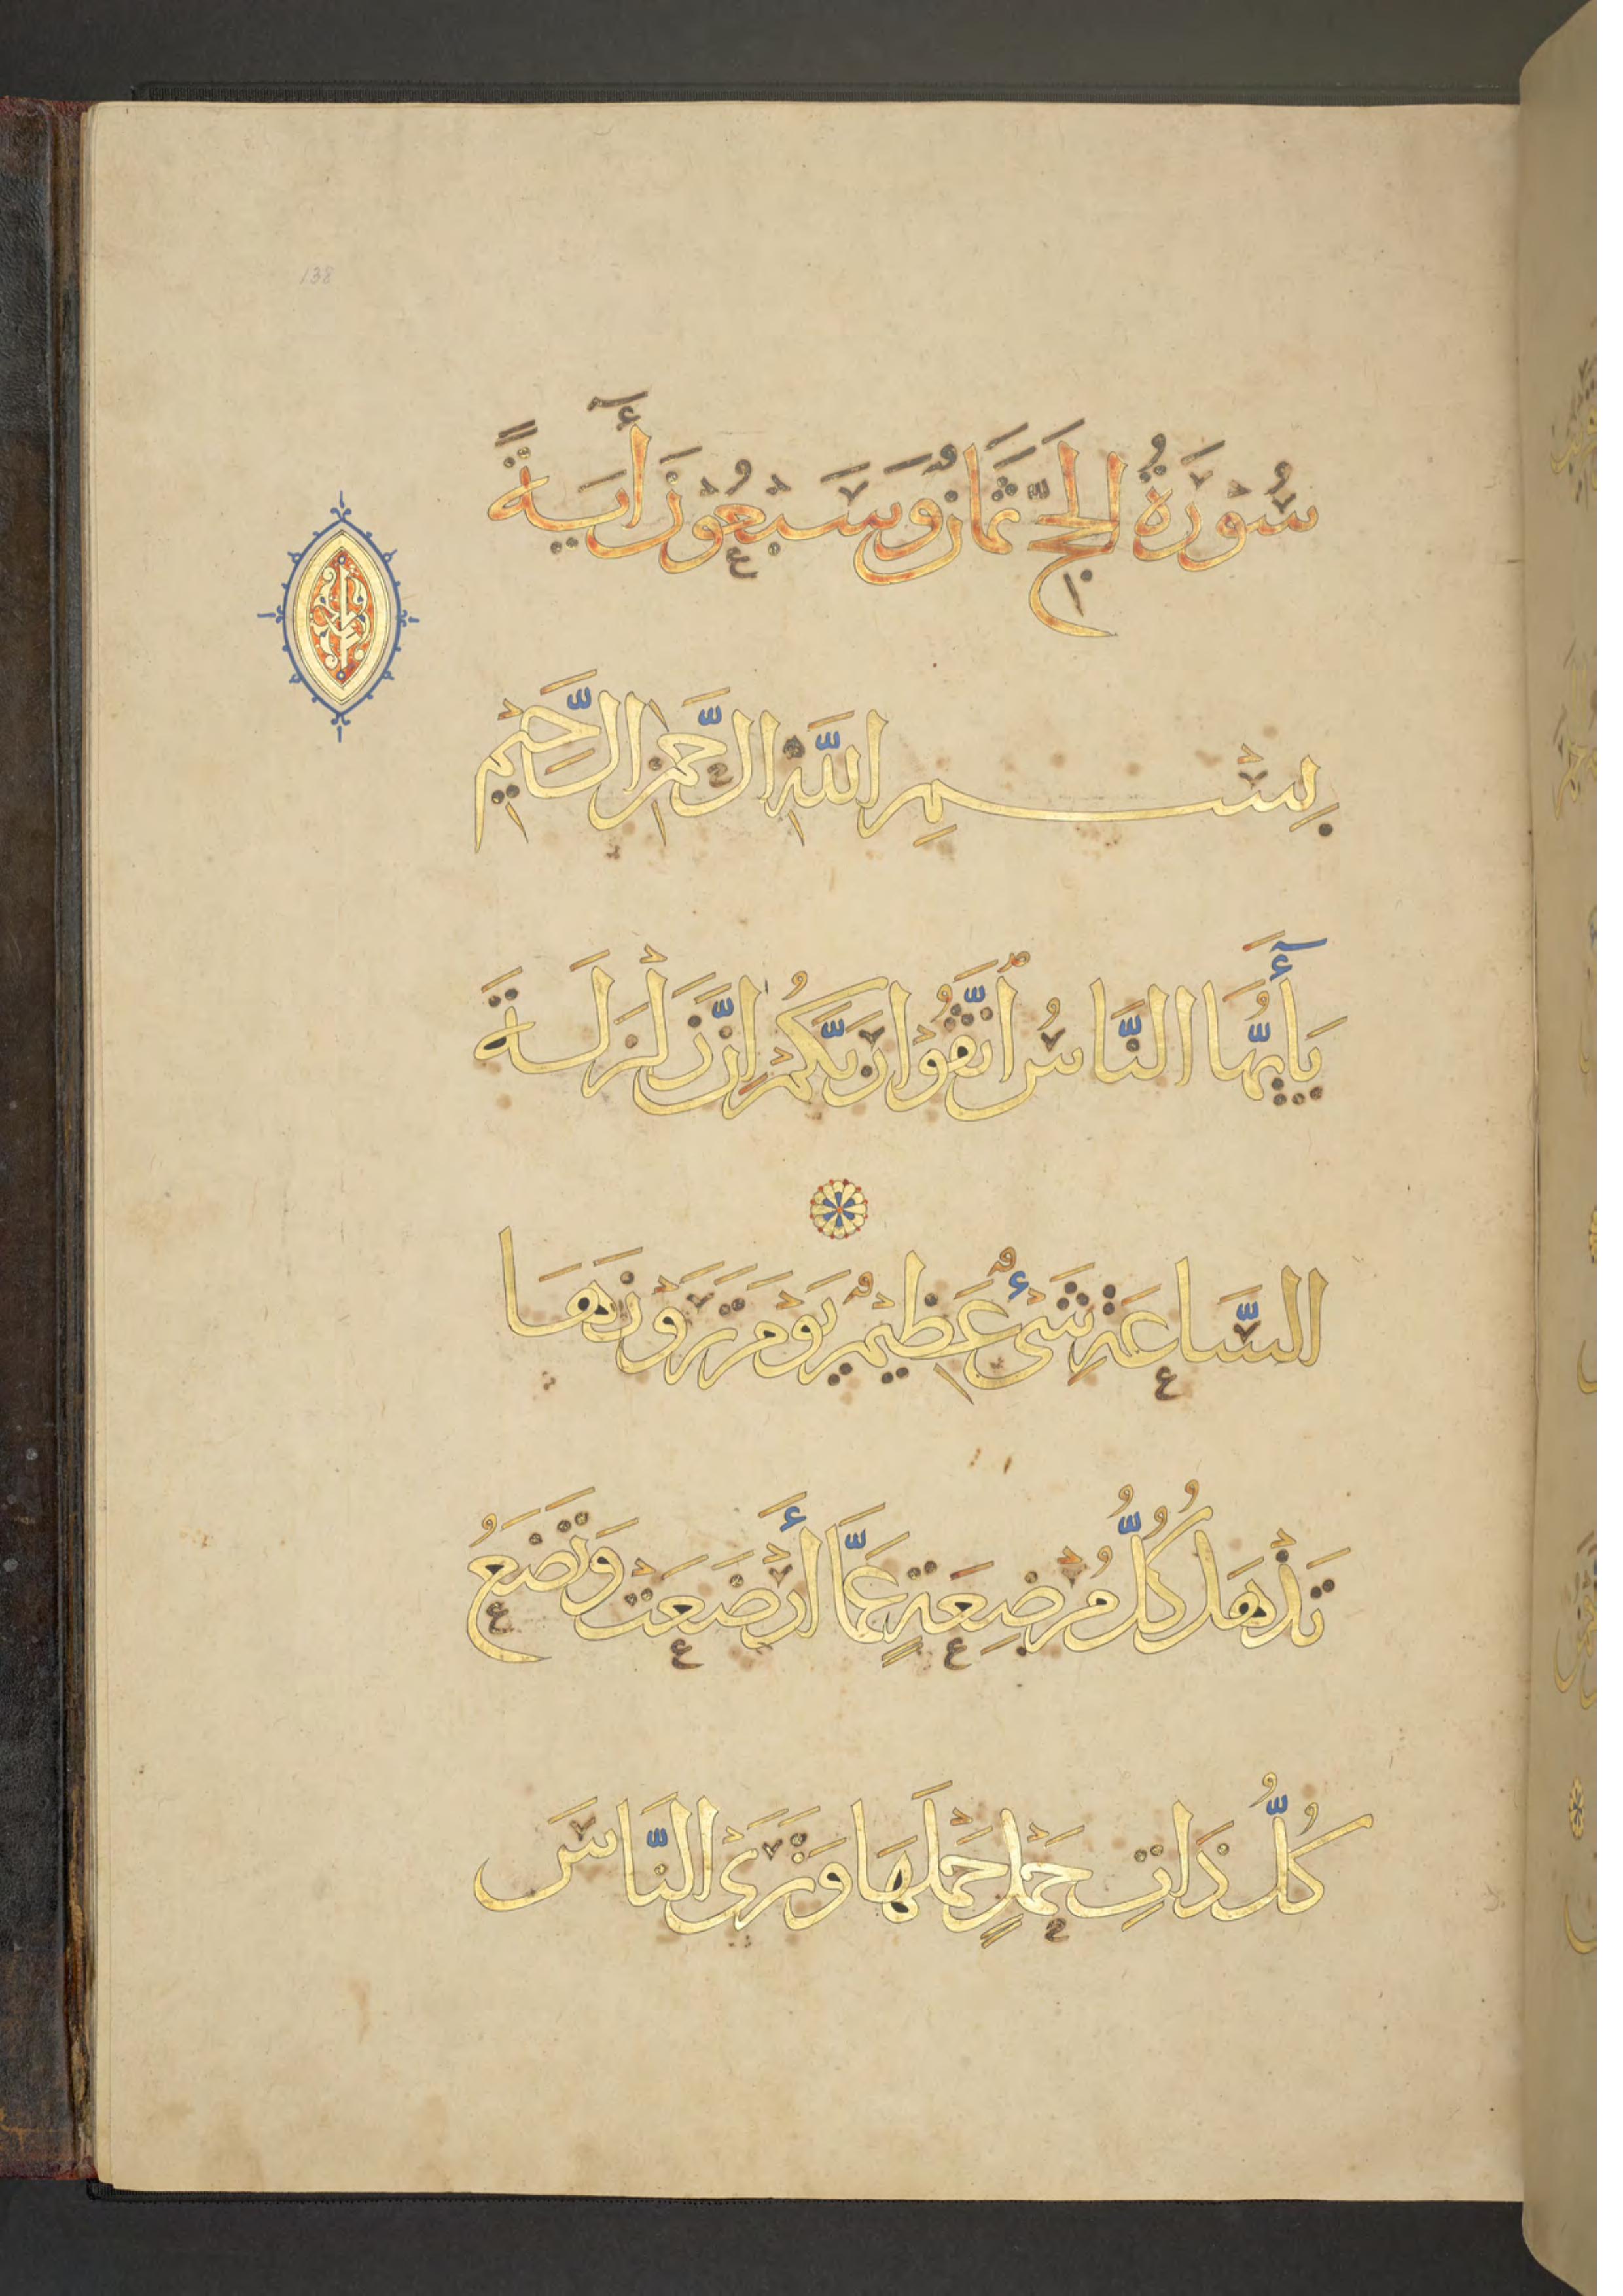 138
سُورَةُ الحَجِّ ثَمَانٌ وَسَبْعُونَ أَيَةً
بِسْمِ اللَّهِ الرَّحْمٰنِ الرَّحِيمِ
يَأَيُّهَا النَّاسُ ٱتَّقُوْا رَبَّكُمْ إِنَّ زَلْزَلَةَ
السَّاعَةِ شَىْءٌ عَظِيْمٌ يَوْمَ تَرَوْنَهَا
تَذْهَلُ كُلُّ مُرْضِعَةٍ عَمَّا أَرْضَعَتْ وَتَضَعُ
كُلُّ ذَاتِ حَمْلٍ حَمْلَهَا وَتَرَى النَّاسَ